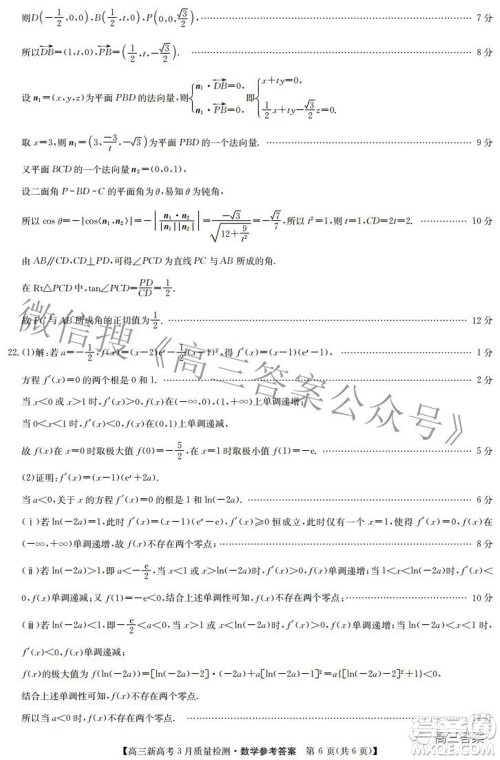 则D(-1/2,0,0),B(1/2,t,0),P(0,0,√3/2), …… 7分
所以DB→=(1,t,0),PB→=(1/2,t,-√3/2). …… 8分
设n₁=(x,y,z)为平面PBD的法向量,则{n₁·DB→=0, n₁·PB→=0, 即{x+ty=0, 1/2x+ty-√3/2z=0.
取x=3,则n₁=(3,-3/t,-√3)为平面PBD的一个法向量. …… 9分
又平面BCD的一个法向量n₂=(0,0,1),
设二面角P-BD-C的平面角为θ,易知θ为钝角,
所以cos θ=-|cos⟨n₁,n₂⟩|=-|n₁·n₂/|n₁||n₂||=-√3/√(12+9/t²)=-√7/7,所以t²=1,则t=1,CD=2t=2. …… 10分
由AB∥CD,CD⊥PD,可得∠PCD为直线PC与AB所成的角.
在Rt△PCD中,tan∠PCD=PD/CD=1/2.
故PC与AB所成角的正切值为1/2. …… 12分
22.(1)解:若a=-1/2,f(x)=(x-2)eˣ-1/2(x-1)²,得f′(x)=(x-1)(eˣ-1), …… 1分
方程f′(x)=0的两个根是0和1. …… 2分
当x<0或x>1时,f′(x)>0,f(x)在(-∞,0),(1,+∞)上单调递增;
当0<x<1时,f′(x)<0,f(x)在(0,1)上单调递减.
故f(x)在x=0时取极大值f(0)=-5/2,在x=1时取极小值f(1)=-e. …… 5分
(2)证明:f′(x)=(x-1)(eˣ+2a).
当a<0,关于x的方程f′(x)=0的根是1和ln(-2a). …… 6分
(ⅰ)若ln(-2a)=1,此时f′(x)=(x-1)(eˣ-e),f′(x)≥0恒成立,此时仅有一个x=1,使得f′(x)=0,f(x)在
(-∞,+∞)单调递增,故f(x)不存在两个零点; …… 8分
(ⅱ)若ln(-2a)>1,即a<-e/2,当x<1或x>ln(-2a)时,f′(x)>0,f(x)单调递增;当1<x<ln(-2a)时,f′(x)
<0,f(x)单调递减;又f(1)=-e<0,
结合上述单调性可知,f(x)不存在两个零点; …… 10分
(ⅲ)若ln(-2a)<1,即-e/2<a<0,当x>1或x<ln(-2a)时,f′(x)>0,f(x)单调递增;当ln(-2a)<x<1时,
f′(x)<0,f(x)单调递减.
f(x)的极大值为f(ln(-2a))=[ln(-2a)-2](-2a)+a[ln(-2a)-1]²=a{[ln(-2a)-2]²+1}<0,
结合上述单调性可知,f(x)不存在两个零点.
所以当a<0时,f(x)不存在两个零点. …… 12分
【高三新高考3月质量检测·数学参考答案 第6页(共6页)】
微信搜《高三答案公众号》
高三答案